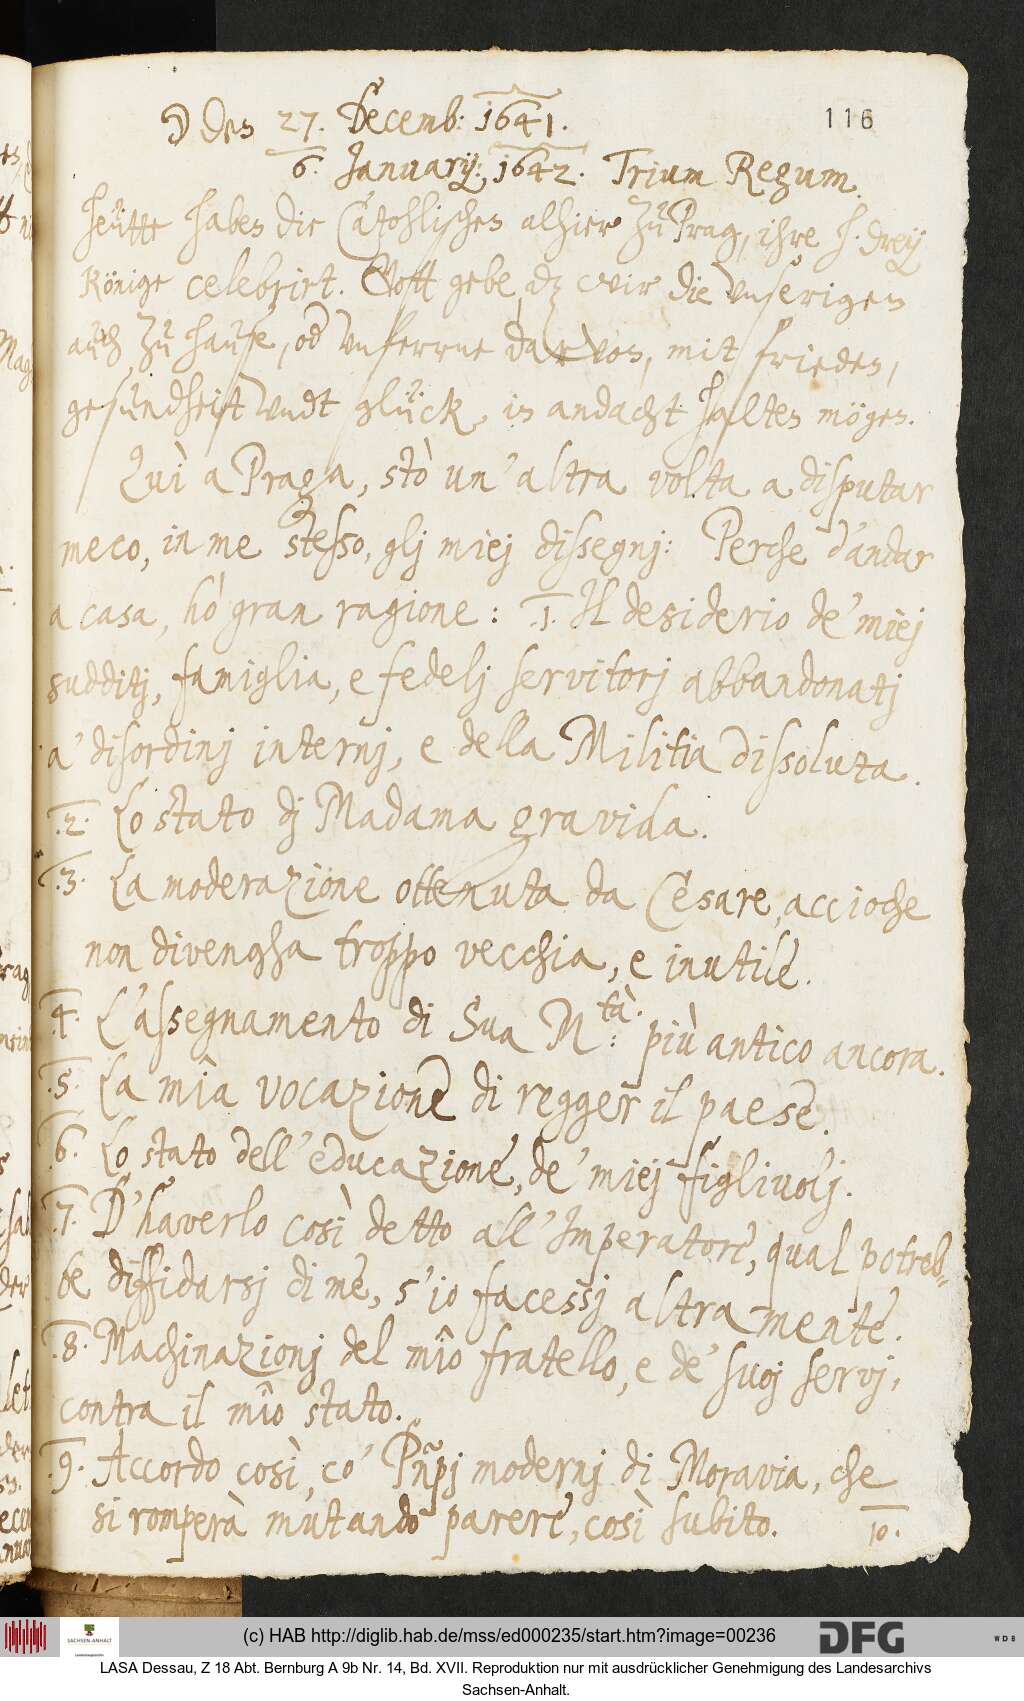 116
☽ den 27. Decemb: 1641.
6. January: 1642. Trium Regum.
Heütte haben die Catohlischen alhier zu Prag, ihre h. drey
Könige celebrirt. Gott gebe, dz wir die vnserigen
auch zu hause, od vnferrne darvon, mit frieden,
gesundheit vndt glück, in andacht halten mögen.
Quì a Praga, stò un' altra volta a disputar
meco, in me stesso, glj miej dissegnj: Perche d'andar
a casa, hò gran ragione: .1. Il desiderio de' miej
sudditj, famiglia, e fedelj servitorj abbandonatj
a' disordinj internj, e della Militia dissoluta.
.2. Lo stato dj Madama gravida.
.3. La moderazione ottenuta da Cesare, accioche
non divengha troppo vecchia, e inutile.
.4. L'assegnamento di Sua M.tà: più antico ancora.
.5. La mia vocazione di regger il paese.
.6. Lo stato dell' educazione, de' miej figlivolj.
.7. D'haverlo così detto all' Imperatore, qual potreb-
be diffidarsj di me, s'io facessj altramente.
.8. Machinazionj del mio fratello, e de' suoj servj,
contra il mio stato.
.9. Accordo così, co' Pñpj modernj di Moravia, che
si romperà mutando parere, così subito.
10.
(c) HAB http://diglib.hab.de/mss/ed000235/start.htm?image=00236
SACHSEN-ANHALT
DFG
WDB
LASA Dessau, Z 18 Abt. Bernburg A 9b Nr. 14, Bd. XVII. Reproduktion nur mit ausdrücklicher Genehmigung des Landesarchivs
Sachsen-Anhalt.